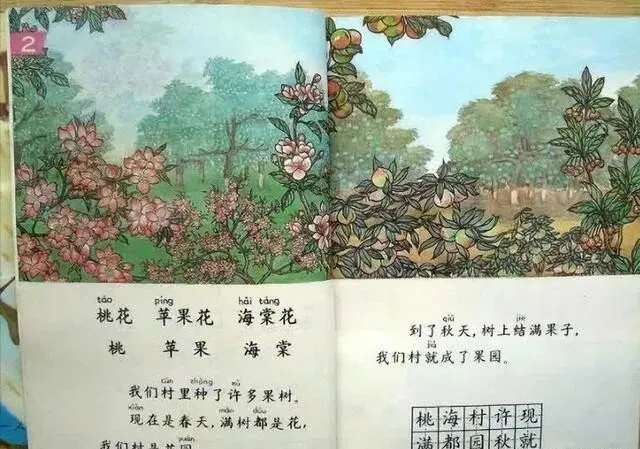 2
táo píng hǎi táng
桃花 苹果花 海棠花
桃 苹果 海棠
cūn zhòng xǔ
我们村里种了许多果树。
xiàn mǎn dōu
现在是春天，满树都是花，
yuán
我们村是花园
qiū jiē
到了秋天，树上结满果子，
jiù
我们村就成了果园。
桃 海 村 许 现
满 都 园 秋 就